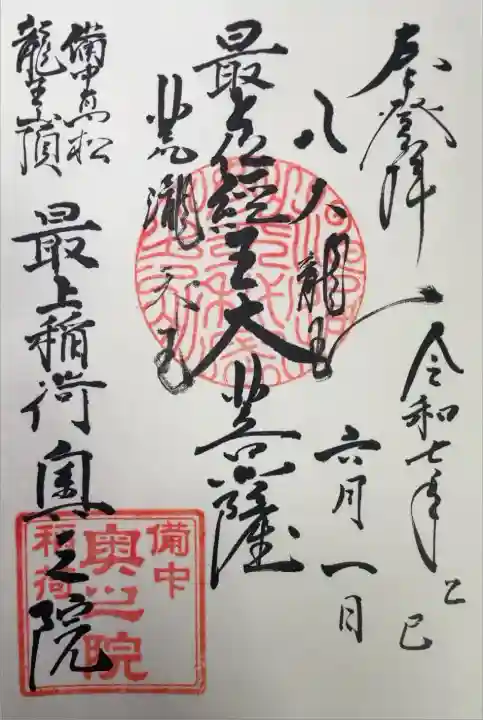 奉登拝
令和七年 乙巳
六月一日
八大龍王
最上位經王大菩薩
荒瀧天王
備中高松
龍王山頂
最上稲荷 奥之院
備中
奥之院
稲荷